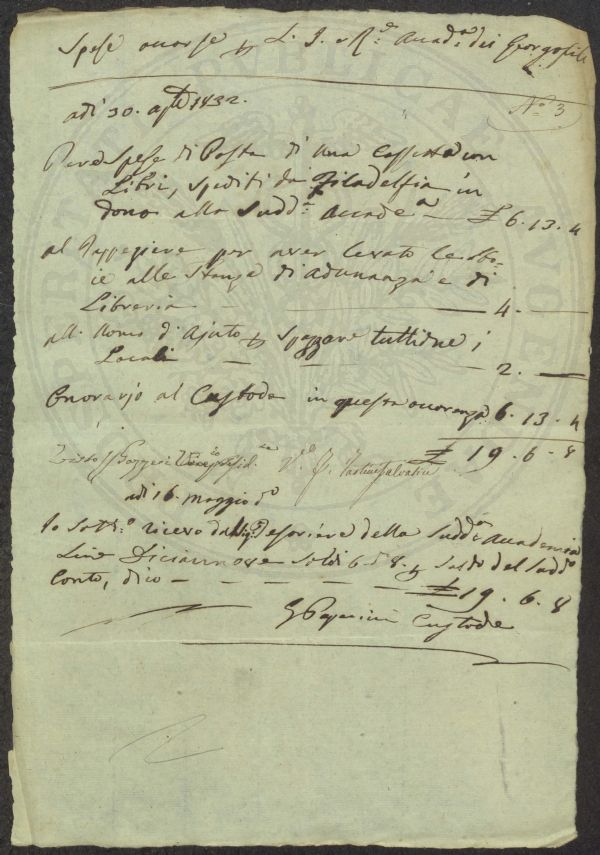 Spese occorse p L. I. e R.e Accad.a dei Georgofili
N.o 3
adi 30. ap.le 1832.
Per Spese di Posta di una Cassetta con
Libri, spediti da Filadelfia in
dono alla Sudd.a Accade.a — £ 6.13.4
al Tappeziere per aver levato le stoie
alle Stanze di adunanza e di
Libreria — 4. —
all. Uomo d'ajuto p spazzare tutti due i
Locali — — — 2. —
Onorario al Custode in questa occorenza 6.13.4
£ 19.6.8
adi 16. Maggio d.o
Io Sott.o ricevo dal Sig.e Tesoriere della Sudd.a Accademia
Lire Diciannove Soldi 6 d 8. p Saldo del Sudd.o
Conto, dico — — — — £ 19.6.8
Custode